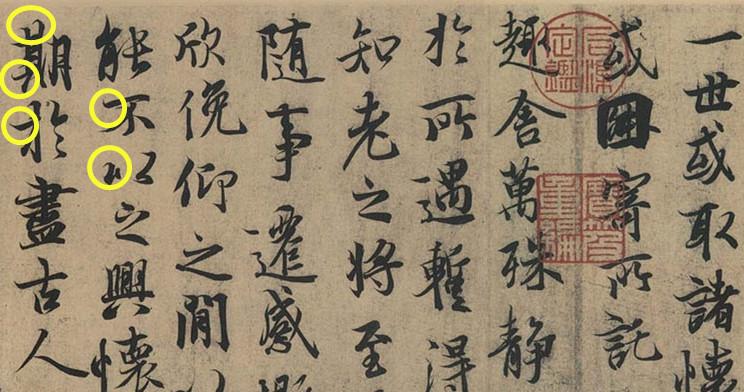 一世或取諸懷
或因寄所託
趣舍萬殊静
於所遇蹔得
知老之將至
随事遷感慨
欣俛仰之閒以
能不以之興懷
期於盡古人